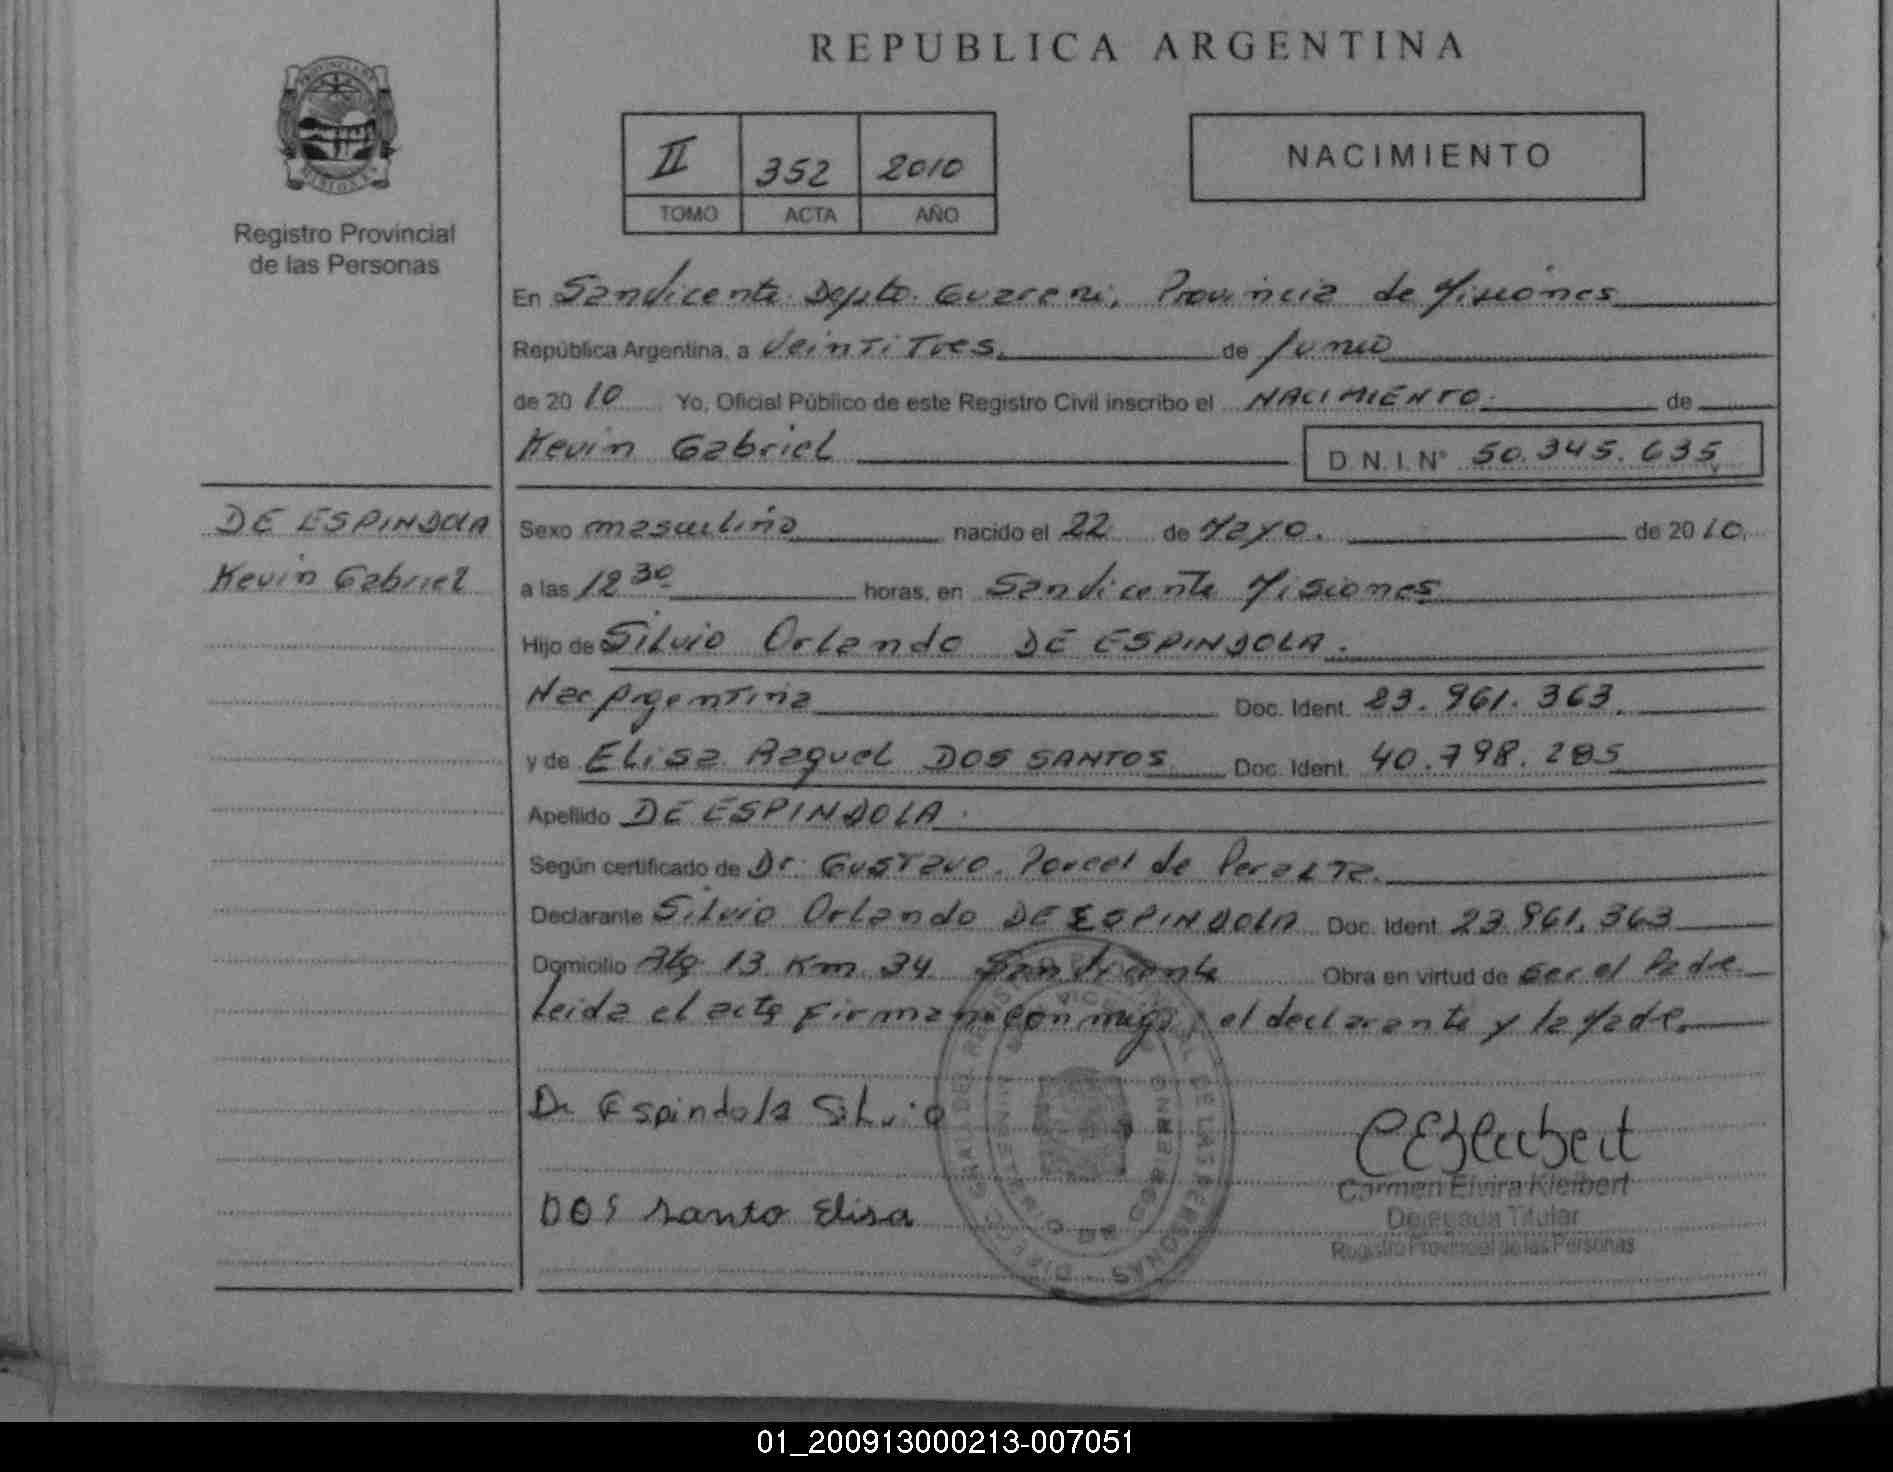 REPUBLICA ARGENTINA
II 352 2010
TOMO ACTA AÑO
NACIMIENTO
PROVINCIA DE
MISIONES
Registro Provincial
de las Personas
En San Vicente Depto. Guarani, Provincia de Misiones
República Argentina, a Veintitres de Junio
de 2010 Yo, Oficial Público de este Registro Civil inscribo el NACIMIENTO de
Kevin Gabriel D.N.I. N° 50.345.635
DE ESPINDOLA
Kevin Gabriel
Sexo masculino nacido el 22 de Mayo. de 2010.
a las 12 30 horas, en San Vicente Misiones
Hijo de Silvio Orlando DE ESPINDOLA.
Nac Argentina Doc. Ident. 23.961.363.
y de Elisa Raquel DOS SANTOS Doc. Ident. 40.798.285
Apellido DE ESPINDOLA.
Según certificado de Dr. Gustavo. Porcel de Peralta.
Declarante Silvio Orlando DE ESPINDOLA Doc. Ident. 23.961.363
Domicilio Km 34 San Vicente Obra en virtud de Ser el Padre
Leida el acta Firman conmigo, el declarante y la Madre.
De Espindola Silvio
DOS Santo Elisa
Carmen Elvira Kleibert
Delegada Titular
Registro Provincial de las Personas
01_200913000213-007051